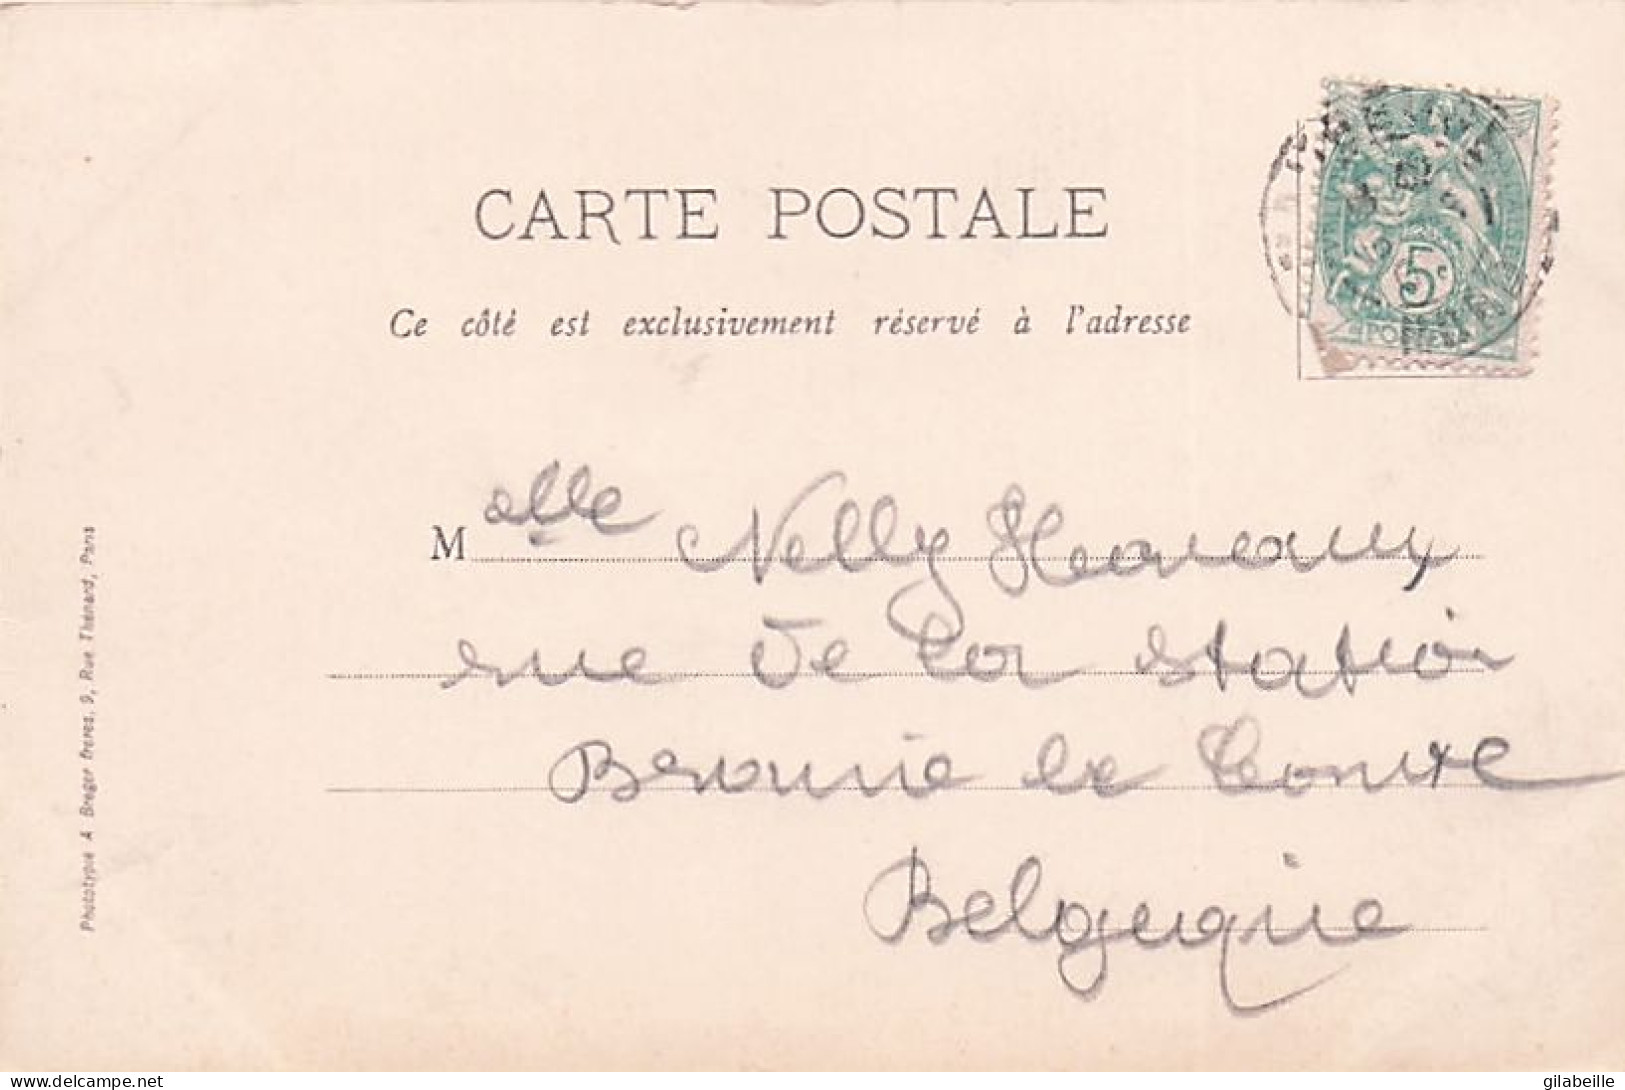 CARTE POSTALE
Ce côté est exclusivement réservé à l'adresse
5c
POSTES
Melle Nelly
rue de la station
Braine le Comte
Belgique
Phototypie A Breger frères, 9, Rue Thénard, Paris
gilabeille